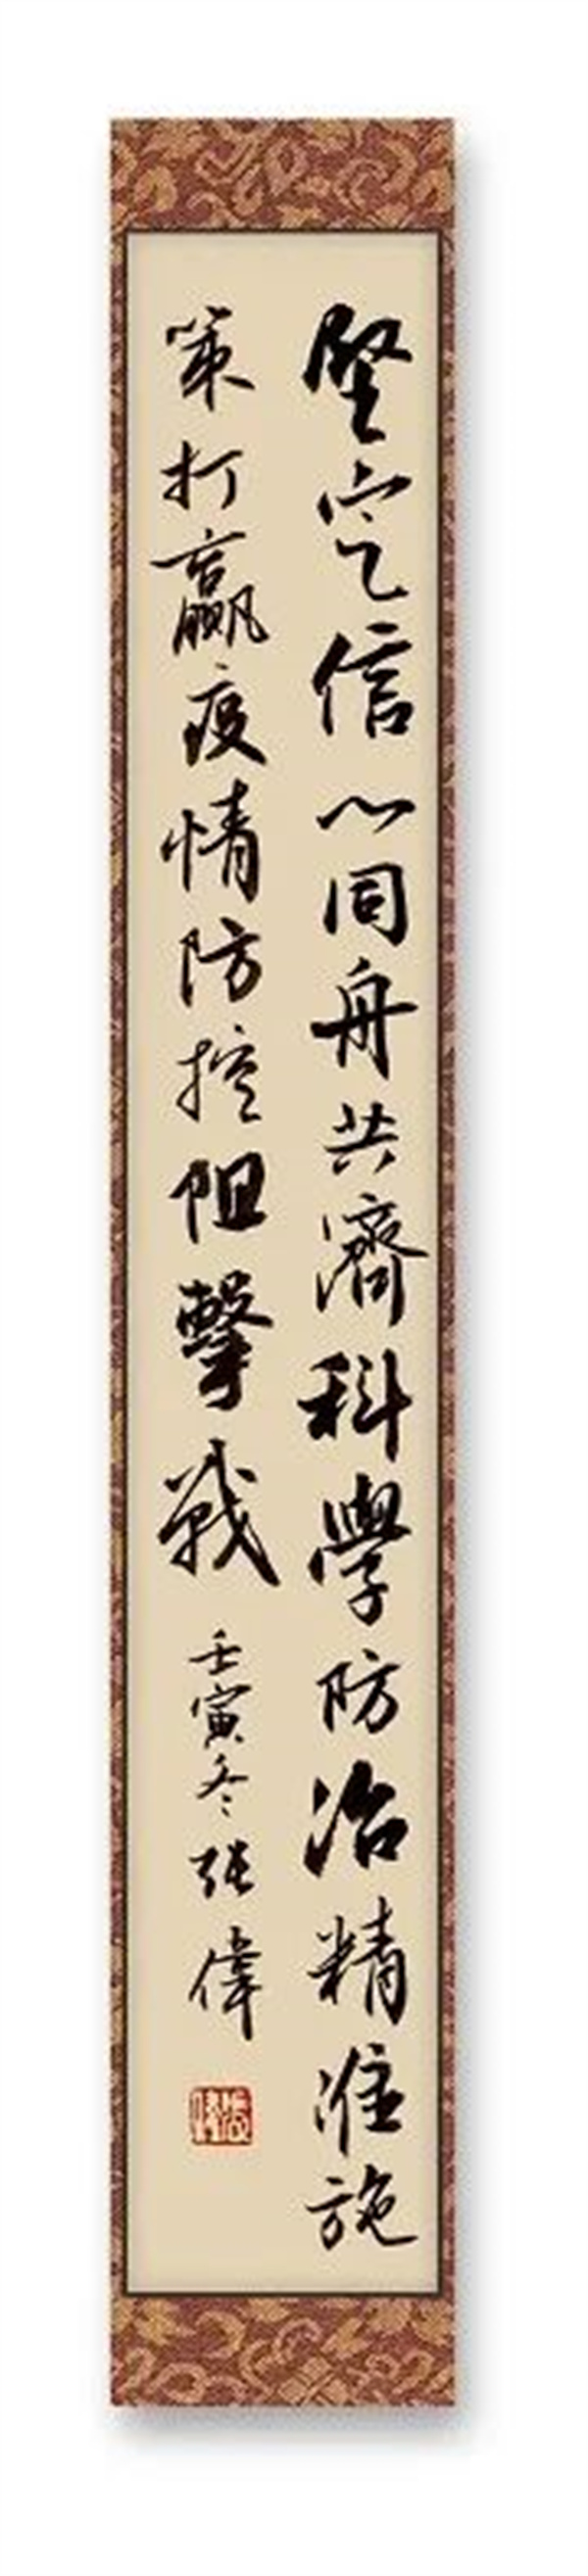 堅定信心同舟共濟科學防治精准施
策打贏疫情防控阻擊戰
壬寅冬張偉
張偉